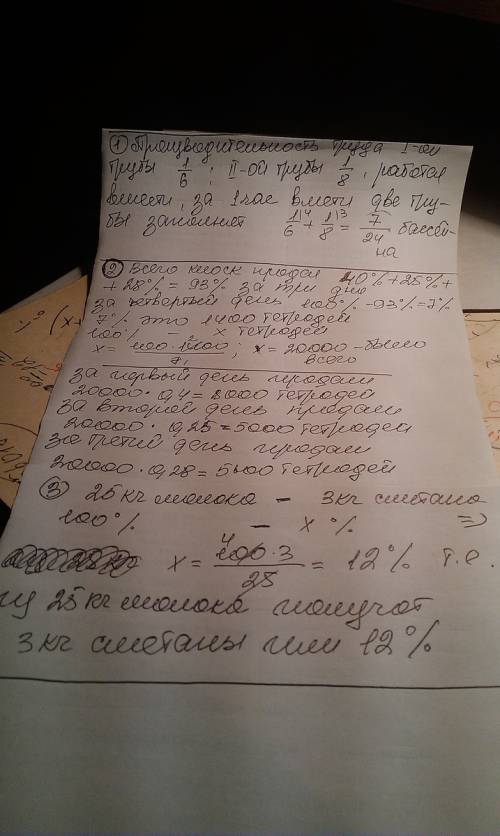 ① Производительность труда I-ой
трубы 1/6; II-ой трубы 1/8, работая
вместе, за 1 час вместе две тру-
бы заполняет 1/6 + 1/8 = 7/24 бассей-
на
② Всего киоск продал 40% + 25% +
+ 28% = 93% за три дня
за четвертый день 100% - 93% = 7%
7% это 1400 тетрадей
100% - x тетрадей
x = 100·1400/7; x = 20000 - было
всего
за первый день продали
20000 · 0,4 = 8000 тетрадей
за второй день продали
20000 · 0,25 = 5000 тетрадей
за третий день продали
20000 · 0,28 = 5600 тетрадей
③ 25 кг молока - 3 кг сметана
100% - x % =>
x = 100·3/25 = 12% т.е.
из 25 кг молока получат
3 кг сметаны или 12%